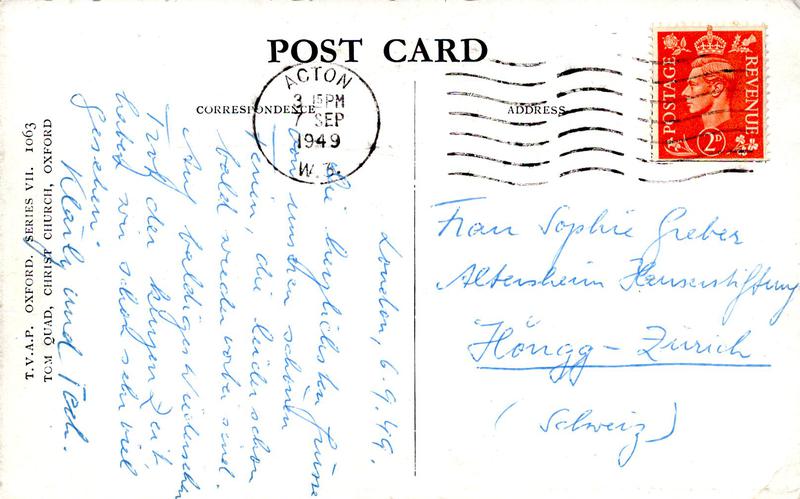 POST CARD
CORRESPONDENCE
ADDRESS
ACTON
3 15PM
7 SEP
1949
W.3.
POSTAGE
REVENUE
2D
T.V.A.P. OXFORD. SERIES VII. 1063
TOM QUAD, CHRIST CHURCH, OXFORD
London, 6.9.49.
Die herzlichsten Grüsse
von unseren schönen
Ferien, die leider schon
bald wieder vorbei sind.
Auf baldiges Wiedersehen
Trotz der kurzen Zeit,
haben wir schon sehr viel
gesehen.
Klärly und
Frau Sophie Greber
Altersheim Hauserstiftung
Höngg - Zürich
(Schweiz)